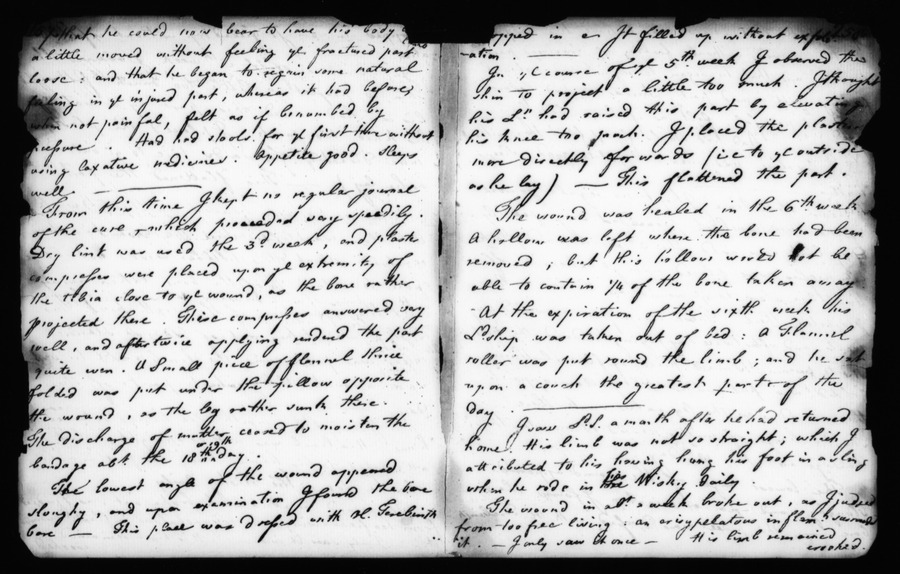 that he could now bear to have his body
a little moved without feeling ye fractured part
loose : and that he began to regain some natural
feeling in ye injured part, whereas it had before,
when not painful, felt as if benumbed by
pressure. Had had stools for ye first time without
using laxative medicines. Appetite good. Sleeps
well.
From this time I kept no regular journal
of the cure, which proceeded very speedily.
Dry lint was used the 3d week, and plaster
compresses were placed upon ye extremity of
the tibia close to ye wound, as the bone rather
projected there These compresses answered very
well, and after twice applying rendered the part
quite even. A Small piece of flannel thrice
folded was put under the pillow opposite
the wound, as the leg rather sunk there.
The discharge of matter ceased to moisten the
bandage abt. the 18th or 19th day.
The lowest angle of the wound appeared
sloughy, and upon examination I found the bone
bare — This place was dressed with Ol. Terebinth
dropped in & It filled up without
ation.
In ye course of ye 5th week I observed the
skin to project a little too much. I thought
his Lp had raised this part by elevating
his knee too much. I placed the
more directly forwards (ie to ye outside
as he lay) — This flattened the part.
The wound was healed in the 6th week
A hollow was left where the bone had been
removed ; but this hollow would not be
able to contain 1/4 of the bone taken away
At the expiration of the sixth week his
Ldship was taken out of bed : A Flannel
roller was put round the limb ; and he sat
upon a couch the greatest part of the
day.
I saw Ld S. a month after he had returned
home. His limb was not so straight ; which I
attributed to his having hung his foot in a sling
when he rode in his Wisky daily.
The wound in abt. a week broke out, as I judged
from too free living : an erisypelatous inflamn. surround
it. — I only saw it once — His limb remained
crooked.